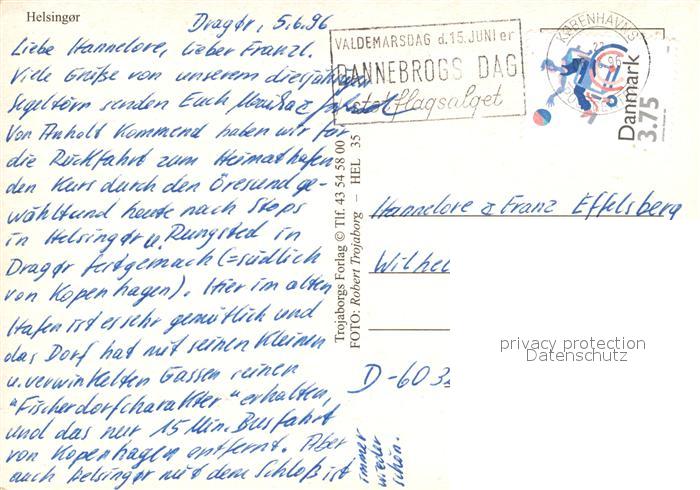 Helsingør
Dragør, 5.6.96
Liebe Hannelore, lieber Franzl.
Viele Grüße von unserem diesjährigen
Segeltörn senden Euch
Von Anholt kommend haben wir für
die Rückfahrt zum Heimathafen
den Kurs durch den Öresund ge-
wählt und heute nach Stops
in Helsingør u. Rungsted in
Dragør festgemach (= südlich
von Kopenhagen). Hier im alten
Hafen ist es sehr gemütlich und
das Dorf hat mit seinen kleinen
u. verwinkelten Gassen seinen
"Fischerdorfcharakter" erhalten,
und das nur 15 Min. Busfahrt
von Kopenhagen entfernt. Aber
auch Helsingør mit dem Schloß ist
immer
wieder
schön.
VALDEMARSDAG d. 15. JUNI er
DANNEBROGS DAG
støt flagsalget
KØBENHAVNS
96
Danmark
3.75
Trojaborgs Forlag © Tlf. 43 54 58 00
FOTO: Robert Trojaborg – HEL 35
Hannelore & Franz Effelsberg
Wilhel
D-603
privacy protection
Datenschutz